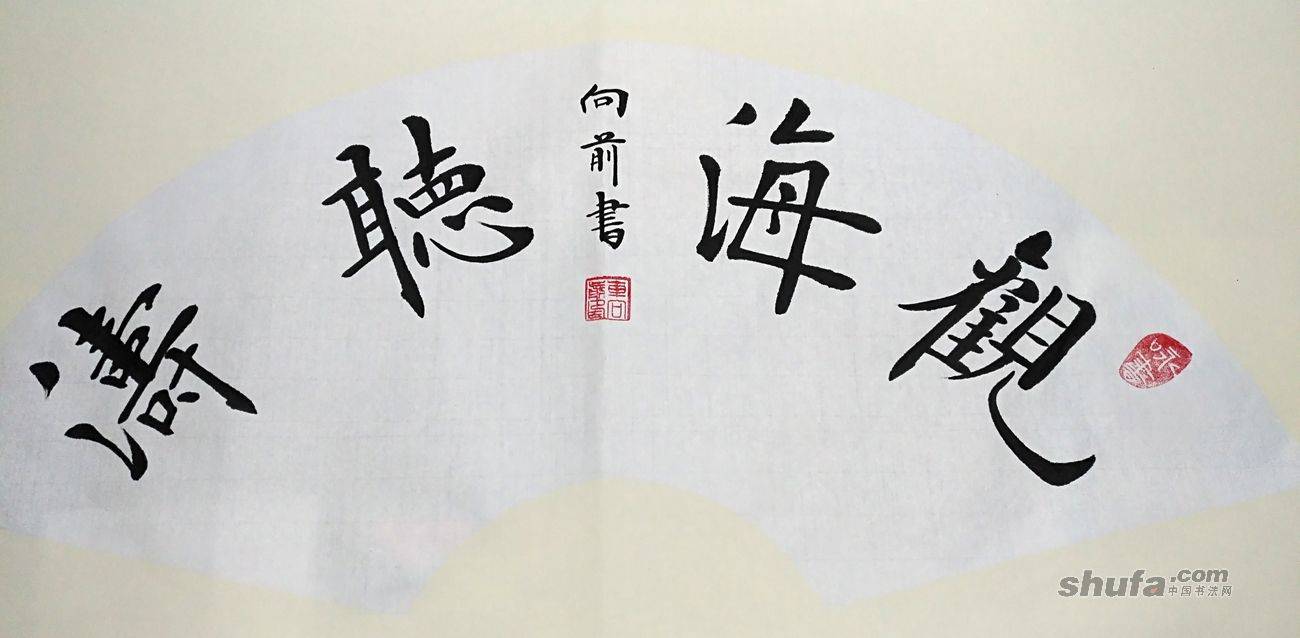 觀海聽濤
向前書
shufa.com
中国书法网